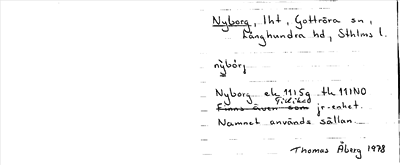 Nyborg, lht, Gottröra sn,
Långhundra hd, Sthlms l.
nỳbór̩j
Nyborg ek 11I5g tk 11INO
Tidigare
Finns även som jr-enhet.
Namnet används sällan.
Thomas Åberg 1978